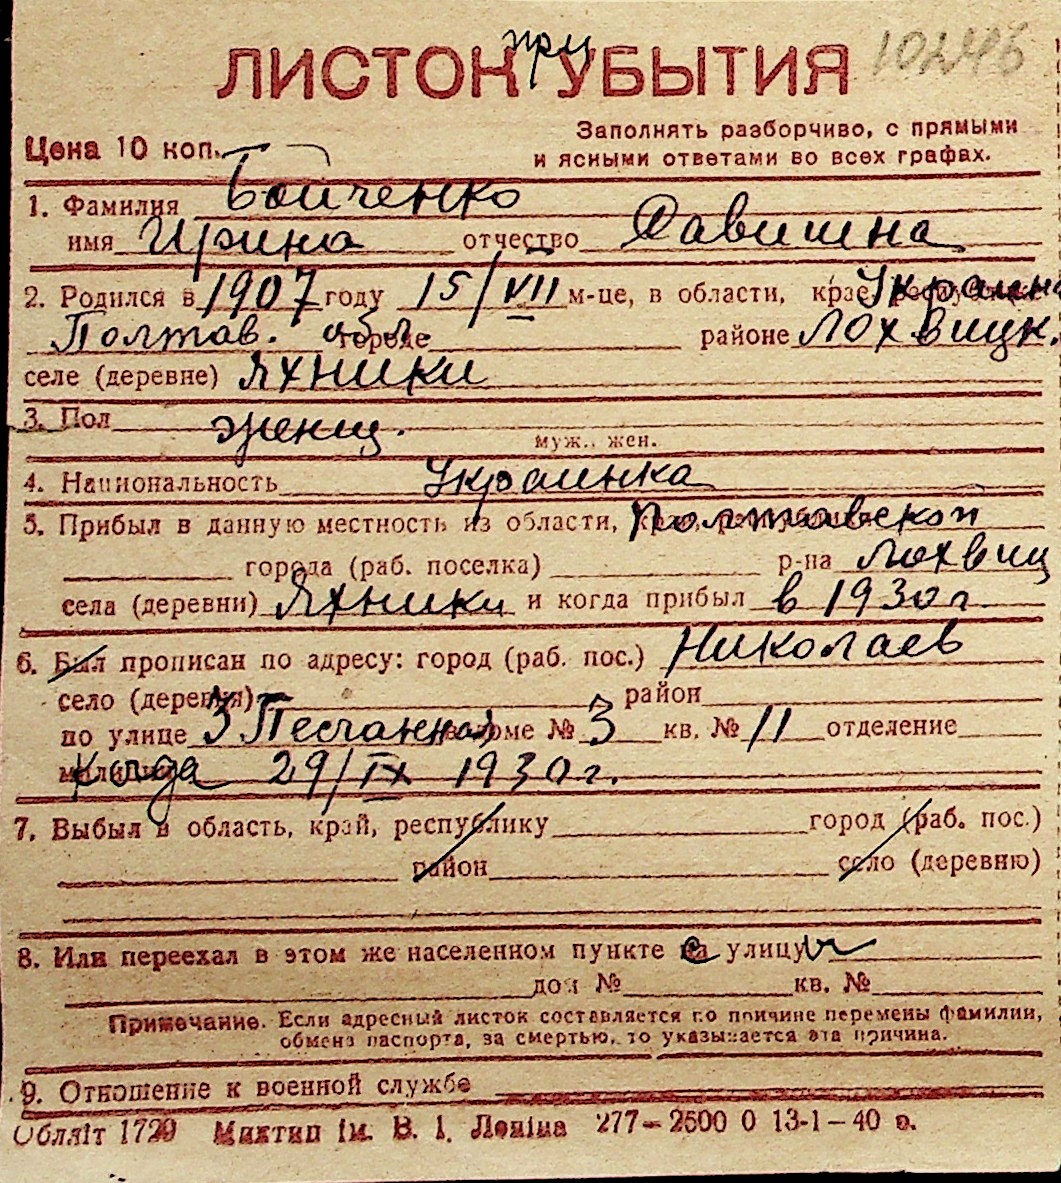 при 102446
ЛИСТОК УБЫТИЯ
Цена 10 коп.
Заполнять разборчиво, с прямыми
и ясными ответами во всех графах.
1. Фамилия Бойченко
имя Ирина отчество Савишна
2. Родился в 1907 году 15/VII м-це, в области, крае, республике Украина
Полтав. обл. городе районе Лохвицк.
селе (деревне) Яхники
3. Пол женщ.
муж., жен.
4. Национальность Украинка
5. Прибыл в данную местность из области, Полтавской
города (раб. поселка) р-на Лохвиц
села (деревни) Яхники и когда прибыл в 1930 г.
6. Был прописан по адресу: город (раб. пос.) Николаев
село (деревня) район
по улице 3 Песчанная в доме № 3 кв. № 11 отделение
милиции когда 29/IX 1930 г.
7. Выбыл в область, край, республику город (раб. пос.)
район село (деревню)
8. Или переехал в этом же населенном пункте с улицы
дом № кв. №
Примечание. Если адресный листок составляется по причине перемены фамилии,
обмена паспорта, за смертью, то указывается эта причина.
9. Отношение к военной службе
Oблліт 1720 Миктип ім. В. І. Леніна 277—2500 0 13-1-40 р.